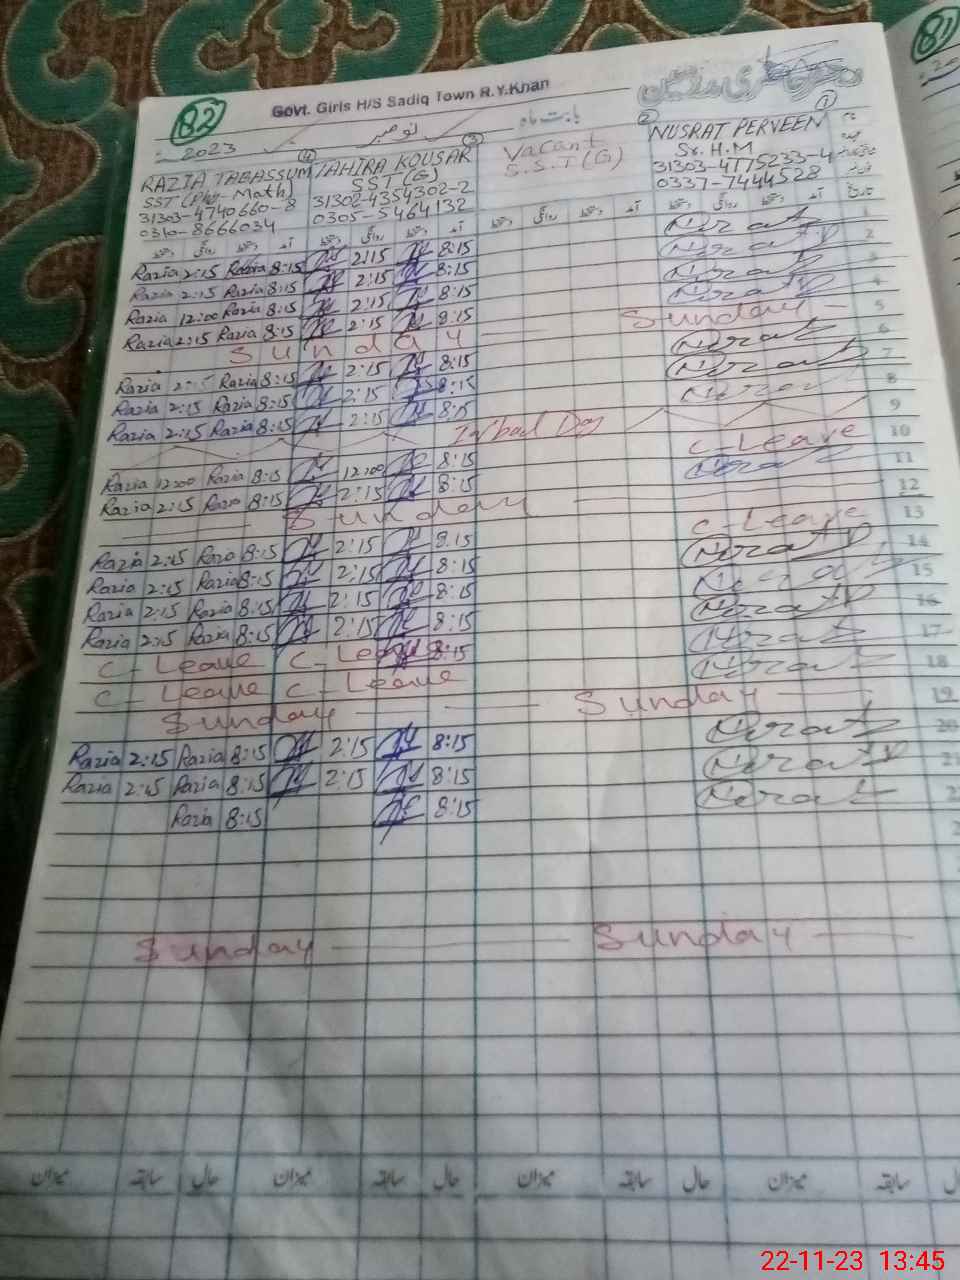 82
Govt. Girls H/S Sadiq Town R.Y.Khan
81
2023
نومبر
بابت ماہ
4
3
2
1
RAZIA TABASSUM
SST (Phy-Math)
31303-4740660-8
0310-8666034
TAHIRA KOUSAR
SST (G)
31302-4354302-2
0305-5464132
Vacant
S.S.T (G)
NUSRAT PERVEEN
Sr. H.M
31303-4775233-4
0337-7444528
Razia 2:15 Razia 8:15 2:15 8:15 1
Razia 2:15 Razia 8:15 2:15 8:15 2
Razia 12:00 Razia 8:15 2:15 8:15 3
Razia 2:15 Razia 8:15 2:15 8:15 4
Sunday Sunday 5
Razia 2:15 Razia 8:15 2:15 8:15 6
Razia 2:15 Razia 8:15 2:15 8:15 7
Razia 2:15 Razia 8:15 2:15 8:15 8
Iqbal Day 9
Razia 12:00 Razia 8:15 12:00 8:15 C-Leave 10
Razia 2:15 Razia 8:15 2:15 8:15 11
Sunday 12
Razia 2:15 Razia 8:15 2:15 8:15 C-Leave 13
Razia 2:15 Razia 8:15 2:15 8:15 14
Razia 2:15 Razia 8:15 2:15 8:15 15
Razia 2:15 Razia 8:15 2:15 8:15 16
C-Leave C-Leave 8:15 17
C-Leave C-Leave 18
Sunday Sunday 19
Razia 2:15 Razia 8:15 2:15 8:15 20
Razia 2:15 Razia 8:15 2:15 8:15 21
Razia 8:15 8:15
Sunday Sunday
میزان سابقہ حال میزان سابقہ حال میزان سابقہ حال میزان سابقہ
22-11-23 13:45